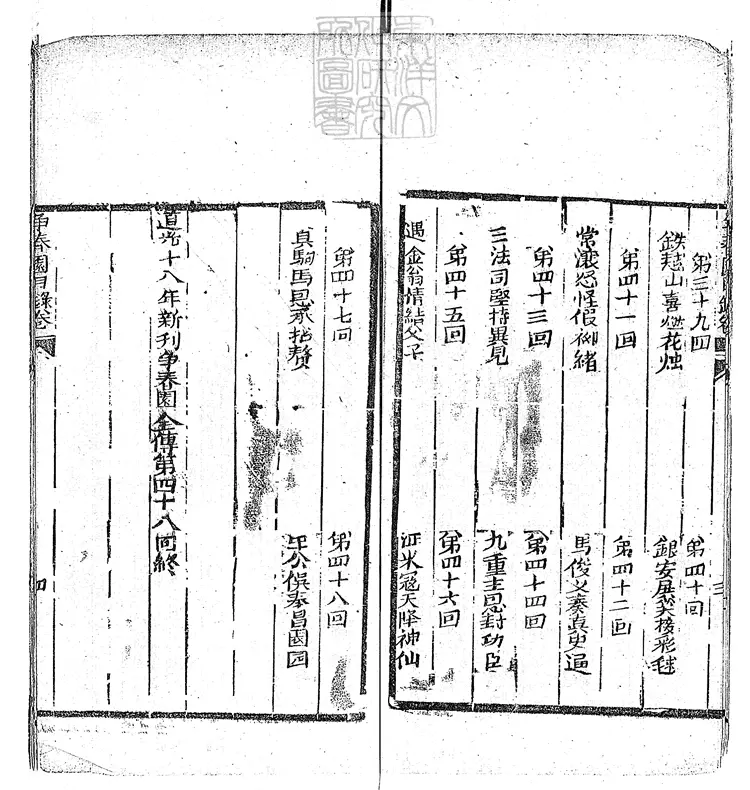 第三十九回
第四十回
鉄球山喜燃花烛
第四十一回
第四十二回
常濚怒怪假御緒
馬俊义奏真史逼
第四十三回
第四十四回
三法司堅持異見
九重主恩封功臣
第四十五回
第四十六回
遇金翁情結父子
征米冦天降神仙
第四十七回
第四十八回
真駒馬恩承招赘
道光十八年新刊争春園全傳第四十八回終
争春園目錄卷
四
東洋文化研究所圖書